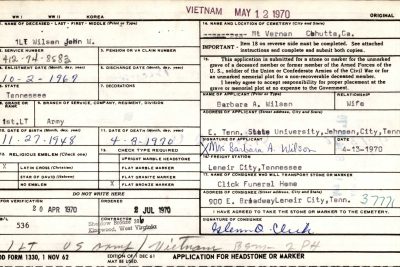 VIETNAM MAY 13 1970
WW I WW II KOREA ORIGINAL
1. NAME OF DECEASED - LAST - FIRST - MIDDLE (Print or Type)
1LT Wilson John W.
14. NAME AND LOCATION OF CEMETERY (City and State)
Mt Vernon Cohutta, Ga.
IMPORTANT - Item 18 on reverse side must be completed. See attached instructions and complete and submit both copies.
2. SERVICE NUMBER
3. PENSION OR VA CLAIM NUMBER
412-74-8583
15. This application is submitted for a stone or marker for the unmarked grave of a deceased member or former member of the Armed Forces of the U.S., soldier of the Union or Confederate Armies of the Civil War or for an unmarked memorial plot for a non-recoverable deceased member.
I hereby agree to accept responsibility for proper placement at the grave or memorial plot at no expense to the Government.
4. ENLISTMENT DATE (Month, day, year)
5. DISCHARGE DATE (Month, day, year)
10-2-1967
6. STATE
7. DECORATIONS
Tennessee
NAME OF APPLICANT (Print or Type)
RELATIONSHIP
Barbara A. Wilson
Wife
8. GRADE OR RANK
9. BRANCH OF SERVICE, COMPANY, REGIMENT, DIVISION
1st.LT Army
E. Tenn. State University, Johnson,City,Tenn
10. DATE OF BIRTH (Month, day, year)
11. DATE OF DEATH (Month, day, year)
11-27-1948
4-8-1970
SIGNATURE OF APPLICANT
DATE
X Mrs Barbara A. Wilson
4-13-1970
12. RELIGIOUS EMBLEM (Check one)
13. CHECK TYPE REQUIRED
X LATIN CROSS (Christian)
UPRIGHT MARBLE HEADSTONE
STAR OF DAVID (Hebrew)
FLAT MARBLE MARKER
FLAT GRANITE MARKER
NO EMBLEM
X FLAT BRONZE MARKER
FREIGHT STATION
Leneir City,Tennessee
NAME OF CONSIGNEE WHO WILL TRANSPORT STONE OR MARKER
Click Funeral Home
DO NOT WRITE HERE
FOR VERIFICATION
ORDERED
20 APR 1970
2 JUL 1970
ADDRESS OF CONSIGNEE (Street, City and State)
900 E. BroadwayLeneir City,Tenn. 37771
I HAVE AGREED TO TAKE THE STONE OR MARKER TO THE CEMETERY.
536
Kingwood, West Virginia
SIGNATURE OF CONSIGNEE
Glenn O. Click
1 LT US Army Vietnam
DD FORM 1330, 1 NOV 62
APPLICATION FOR HEADSTONE OR MARKER